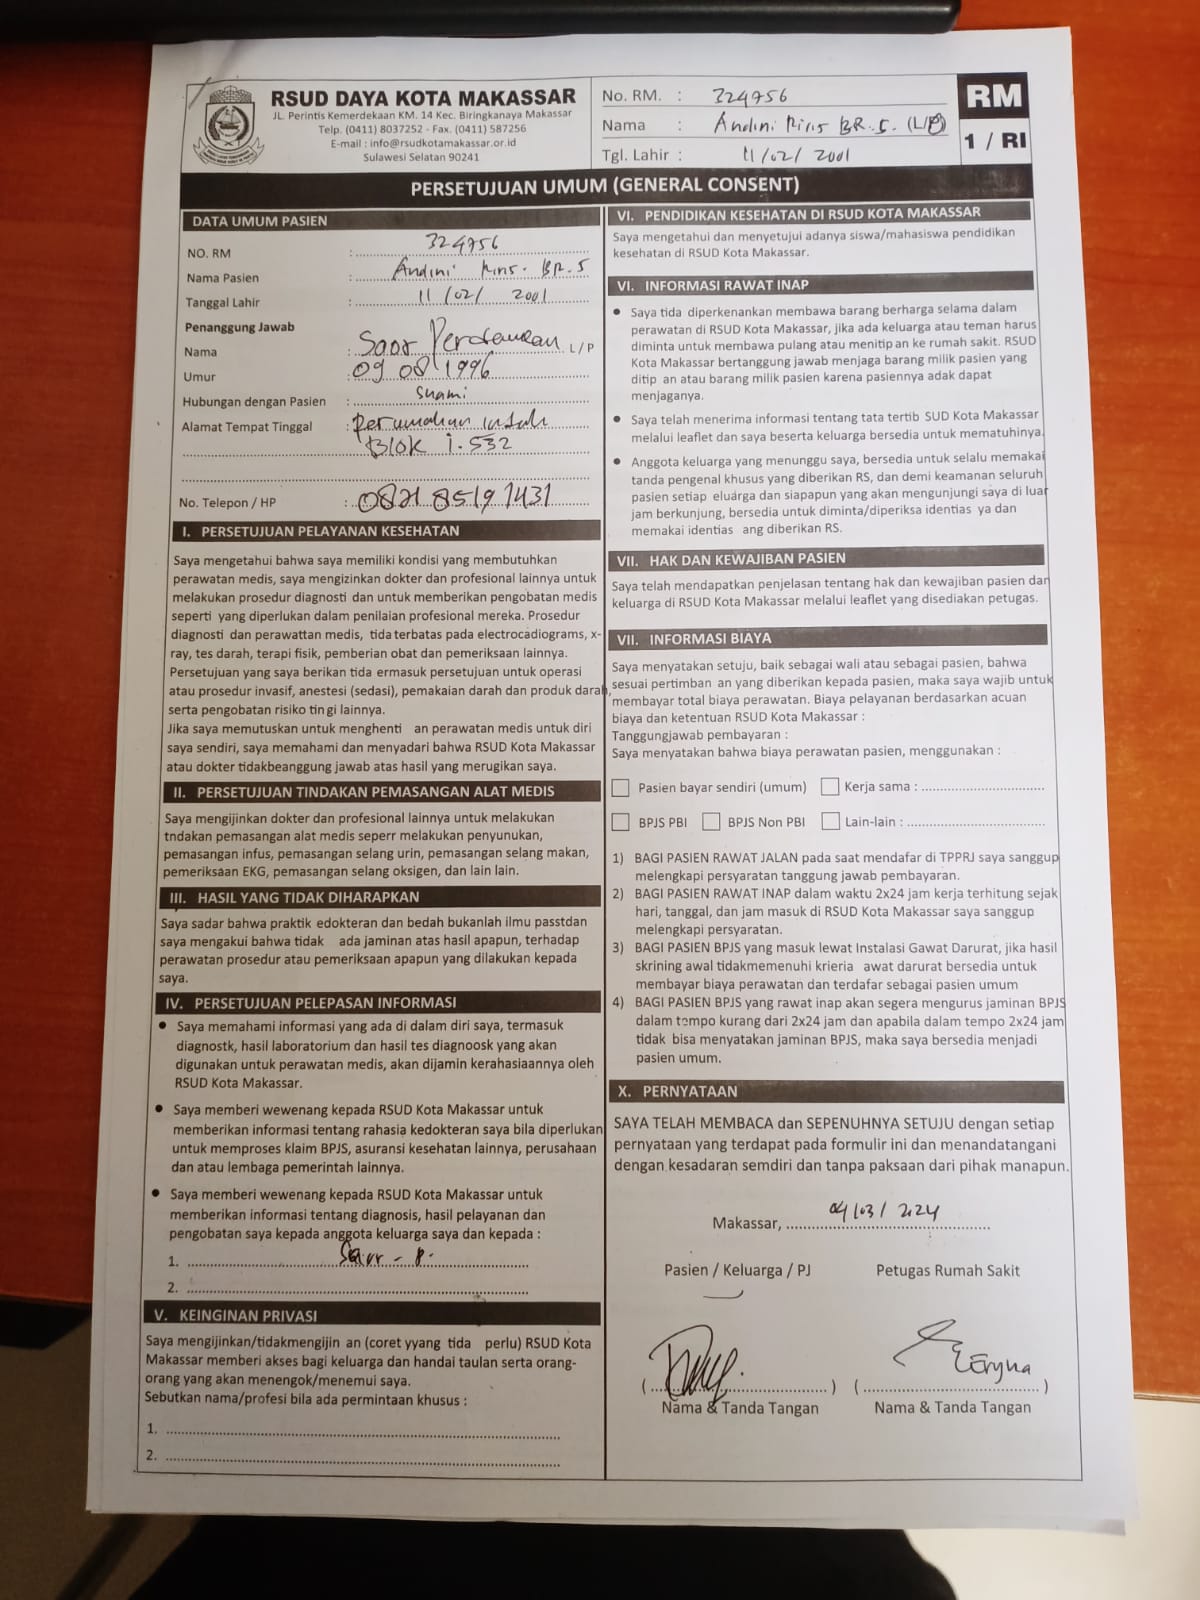 RSUD DAYA KOTA MAKASSAR
JL. Perintis Kemerdekaan KM. 14 Kec. Biringkanaya Makassar
Telp. (0411) 8037252 - Fax. (0411) 587256
E-mail : info@rsudkotamakassar.or.id
Sulawesi Selatan 90241
No. RM. : 324756
Nama : Andini BR. S. (L/P)
Tgl. Lahir : 11/02/2001
RM
1 / RI
PERSETUJUAN UMUM (GENERAL CONSENT)
DATA UMUM PASIEN
NO. RM : 324756
Nama Pasien : Andini BR. S
Tanggal Lahir : 11/02/ 2001
Penanggung Jawab
Nama : L/P
Umur : 09 08 1996
Hubungan dengan Pasien : Suami
Alamat Tempat Tinggal : Perumahan indah
Blok i. 532
No. Telepon / HP : 0821 8519 1431
I. PERSETUJUAN PELAYANAN KESEHATAN
Saya mengetahui bahwa saya memiliki kondisi yang membutuhkan
perawatan medis, saya mengizinkan dokter dan profesional lainnya untuk
melakukan prosedur diagnosti dan untuk memberikan pengobatan medis
seperti yang diperlukan dalam penilaian profesional mereka. Prosedur
diagnosti dan perawattan medis, tida terbatas pada electrocadiograms, x-
ray, tes darah, terapi fisik, pemberian obat dan pemeriksaan lainnya.
Persetujuan yang saya berikan tida ermasuk persetujuan untuk operasi
atau prosedur invasif, anestesi (sedasi), pemakaian darah dan produk darah,
serta pengobatan risiko tin gi lainnya.
Jika saya memutuskan untuk menghenti an perawatan medis untuk diri
saya sendiri, saya memahami dan menyadari bahwa RSUD Kota Makassar
atau dokter tidakbeanggung jawab atas hasil yang merugikan saya.
II. PERSETUJUAN TINDAKAN PEMASANGAN ALAT MEDIS
Saya mengijinkan dokter dan profesional lainnya untuk melakukan
tndakan pemasangan alat medis seperr melakukan penyunukan,
pemasangan infus, pemasangan selang urin, pemasangan selang makan,
pemeriksaan EKG, pemasangan selang oksigen, dan lain lain.
III. HASIL YANG TIDAK DIHARAPKAN
Saya sadar bahwa praktik edokteran dan bedah bukanlah ilmu passtdan
saya mengakui bahwa tidak ada jaminan atas hasil apapun, terhadap
perawatan prosedur atau pemeriksaan apapun yang dilakukan kepada
saya.
IV. PERSETUJUAN PELEPASAN INFORMASI
• Saya memahami informasi yang ada di dalam diri saya, termasuk
diagnostk, hasil laboratorium dan hasil tes diagnoosk yang akan
digunakan untuk perawatan medis, akan dijamin kerahasiaannya oleh
RSUD Kota Makassar.
• Saya memberi wewenang kepada RSUD Kota Makassar untuk
memberikan informasi tentang rahasia kedokteran saya bila diperlukan
untuk memproses klaim BPJS, asuransi kesehatan lainnya, perusahaan
dan atau lembaga pemerintah lainnya.
• Saya memberi wewenang kepada RSUD Kota Makassar untuk
memberikan informasi tentang diagnosis, hasil pelayanan dan
pengobatan saya kepada anggota keluarga saya dan kepada :
1.
2.
V. KEINGINAN PRIVASI
Saya mengijinkan/tidakmengijin an (coret yyang tida perlu) RSUD Kota
Makassar memberi akses bagi keluarga dan handai taulan serta orang-
orang yang akan menengok/menemui saya.
Sebutkan nama/profesi bila ada permintaan khusus :
1.
2.
VI. PENDIDIKAN KESEHATAN DI RSUD KOTA MAKASSAR
Saya mengetahui dan menyetujui adanya siswa/mahasiswa pendidikan
kesehatan di RSUD Kota Makassar.
VI. INFORMASI RAWAT INAP
• Saya tida diperkenankan membawa barang berharga selama dalam
perawatan di RSUD Kota Makassar, jika ada keluarga atau teman harus
diminta untuk membawa pulang atau menitip an ke rumah sakit. RSUD
Kota Makassar bertanggung jawab menjaga barang milik pasien yang
ditip an atau barang milik pasien karena pasiennya adak dapat
menjaganya.
• Saya telah menerima informasi tentang tata tertib SUD Kota Makassar
melalui leaflet dan saya beserta keluarga bersedia untuk mematuhinya.
• Anggota keluarga yang menunggu saya, bersedia untuk selalu memakai
tanda pengenal khusus yang diberikan RS, dan demi keamanan seluruh
pasien setiap eluárga dan siapapun yang akan mengunjungi saya di luar
jam berkunjung, bersedia untuk diminta/diperiksa identias ya dan
memakai identias ang diberikan RS.
VII. HAK DAN KEWAJIBAN PASIEN
Saya telah mendapatkan penjelasan tentang hak dan kewajiban pasien dan
keluarga di RSUD Kota Makassar melalui leaflet yang disediakan petugas.
VII. INFORMASI BIAYA
Saya menyatakan setuju, baik sebagai wali atau sebagai pasien, bahwa
sesuai pertimban an yang diberikan kepada pasien, maka saya wajib untuk
membayar total biaya perawatan. Biaya pelayanan berdasarkan acuan
biaya dan ketentuan RSUD Kota Makassar :
Tanggungjawab pembayaran :
Saya menyatakan bahwa biaya perawatan pasien, menggunakan :
Pasien bayar sendiri (umum) Kerja sama :
BPJS PBI BPJS Non PBI Lain-lain :
1) BAGI PASIEN RAWAT JALAN pada saat mendafar di TPPRJ saya sanggup
melengkapi persyaratan tanggung jawab pembayaran.
2) BAGI PASIEN RAWAT INAP dalam waktu 2x24 jam kerja terhitung sejak
hari, tanggal, dan jam masuk di RSUD Kota Makassar saya sanggup
melengkapi persyaratan.
3) BAGI PASIEN BPJS yang masuk lewat Instalasi Gawat Darurat, jika hasil
skrining awal tidakmemenuhi krieria awat darurat bersedia untuk
membayar biaya perawatan dan terdafar sebagai pasien umum
4) BAGI PASIEN BPJS yang rawat inap akan segera mengurus jaminan BPJS
dalam tempo kurang dari 2x24 jam dan apabila dalam tempo 2x24 jam
tidak bisa menyatakan jaminan BPJS, maka saya bersedia menjadi
pasien umum.
X. PERNYATAAN
SAYA TELAH MEMBACA dan SEPENUHNYA SETUJU dengan setiap
pernyataan yang terdapat pada formulir ini dan menandatangani
dengan kesadaran semdiri dan tanpa paksaan dari pihak manapun.
Makassar, 04/03/2024
Pasien / Keluarga / PJ Petugas Rumah Sakit
Nama & Tanda Tangan Nama & Tanda Tangan